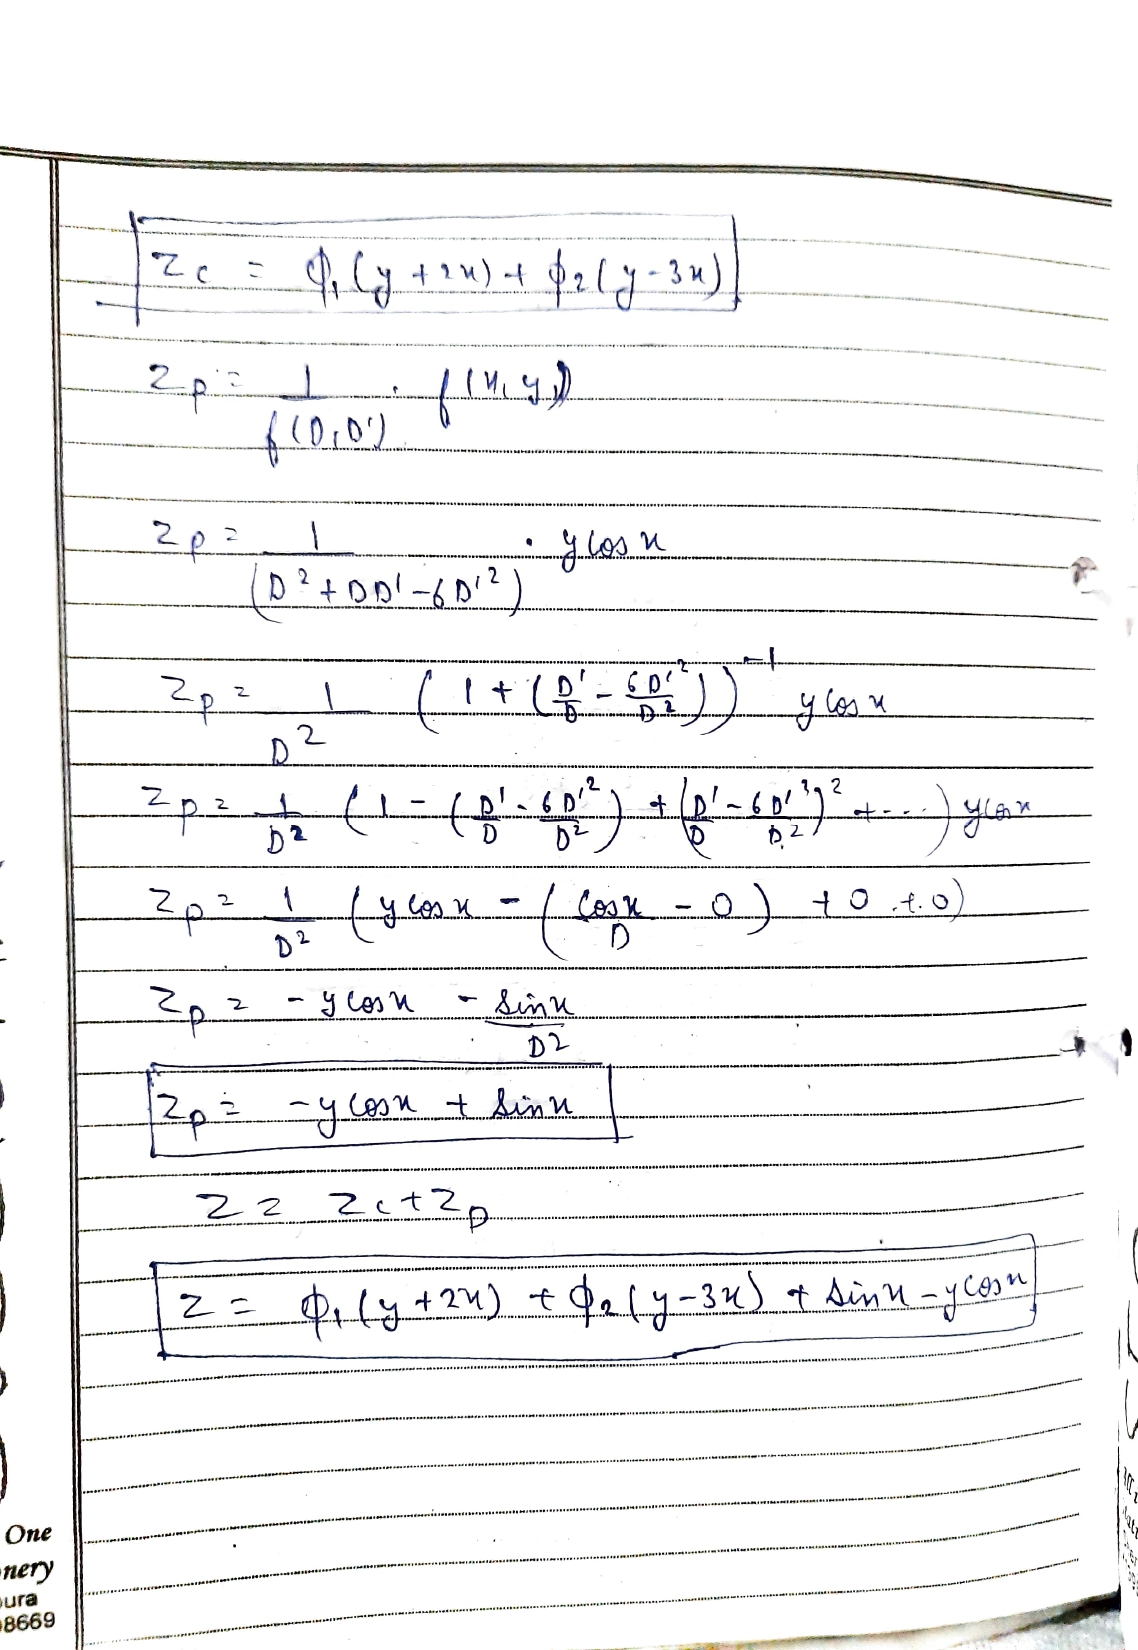 Zc = ϕ₁(y+2x) + ϕ₂(y-3x)
Zp = 1/f(D,D') · f(x,y)
Zp = 1/(D²+DD'-6D'²) · ycosx
Zp = 1/D² (1+(D'/D - 6D'²/D²))⁻¹ ycosx
Zp = 1/D² (1-(D'/D - 6D'²/D²) + (D'/D - 6D'³/D²)² + ...) ycosx
Zp = 1/D² (ycosx - (cosx/D - 0) + 0 + 0)
Zp = -ycosx - sinx/D²
Zp = -ycosx + sinx
Z = Zc+Zp
Z = ϕ₁(y+2x) + ϕ₂(y-3x) + sinx - ycosx
One
nery
ura
8669